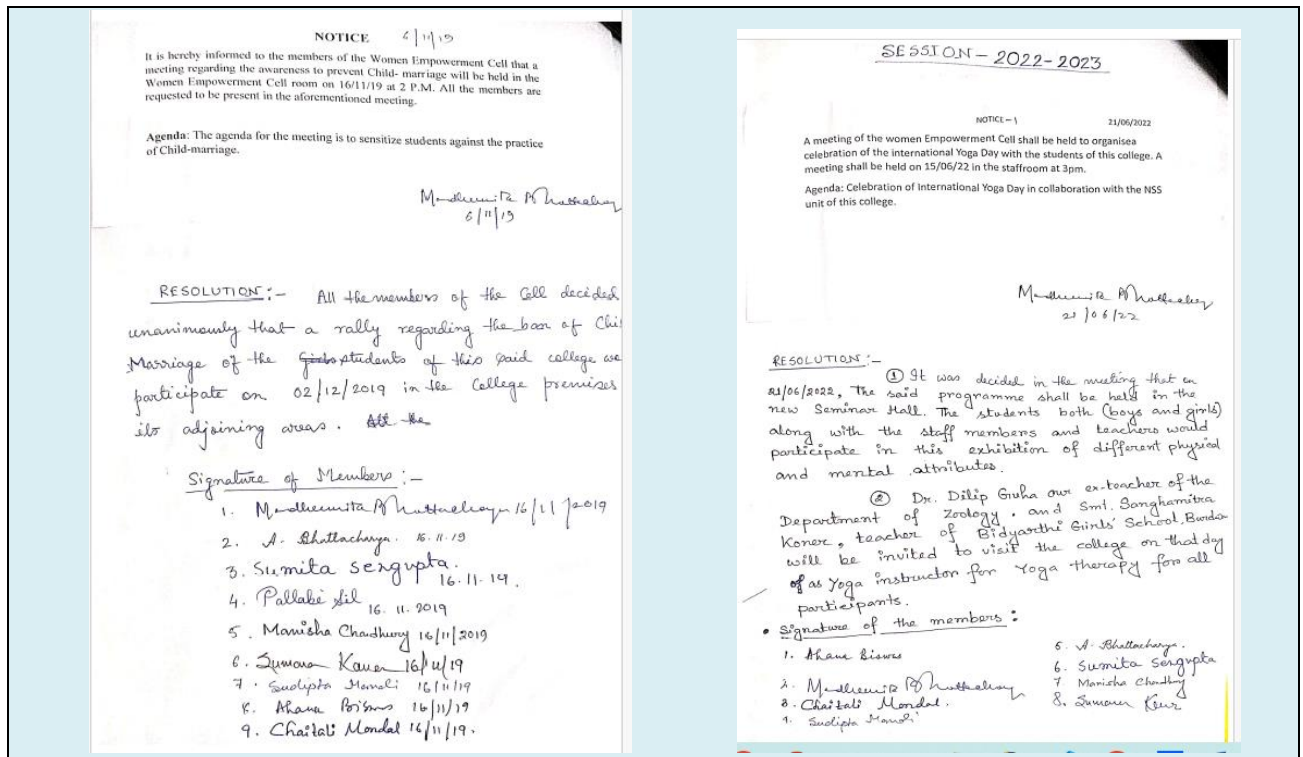 NOTICE 6/11/19
It is hereby informed to the members of the Women Empowerment Cell that a
meeting regarding the awareness to prevent Child- marriage will be held in the
Women Empowerment Cell room on 16/11/19 at 2 P.M. All the members are
requested to be present in the aforementioned meeting.
Agenda: The agenda for the meeting is to sensitize students against the practice
of Child-marriage.
Madhumita Bhattacharya
6/11/19
RESOLUTION:- All the members of the Cell decided
unanimously that a rally regarding the ban of Chi
Marriage of the students of this said college we
participate on 02/12/2019 in the College premises
its adjoining areas. All the
Signature of Members :-
1. Madhumita Bhattacharya 16/11/2019
2. A. Bhattacharya. 16.11.19
3. Sumita Sengupta. 16.11.19.
4. Pallabi Sil 16.11.2019
5. Manisha Chaudhury 16/11/2019
6. Sumana Kauer 16/11/19
7. Sudipta Mondli 16/11/19
8. Ahana Biswas 16/11/19
9. Chaitali Mondal 16/11/19.
SESSION - 2022-2023
NOTICE-1 21/06/2022
A meeting of the women Empowerment Cell shall be held to organisea
celebration of the international Yoga Day with the students of this college. A
meeting shall be held on 15/06/22 in the staffroom at 3pm.
Agenda: Celebration of International Yoga Day in collaboration with the NSS
unit of this college.
Madhumita Bhattacharya
21/06/22
RESOLUTION:-
① It was decided in the meeting that on
21/06/2022, The said programme shall be held in the
new Seminar Hall. The students both (boys and girls)
along with the staff members and teachers would
participate in this exhibition of different physical
and mental attributes.
② Dr. Dilip Guha our ex-teacher of the
Department of Zoology. and Smt. Sanghamitra
Koner, teacher of Bidyarthi Girls' School, Burdw
will be invited to visit the college on that day
as Yoga instructor for Yoga therapy for all
participants.
• Signature of the members :
1. Ahana Biswas
2. Madhumita Bhattacharya
3. Chaitali Mondal.
4. Sudipta
5. A. Bhattacharya.
6. Sumita Sengupta
7 Manisha Chaudhury
8. Sumana